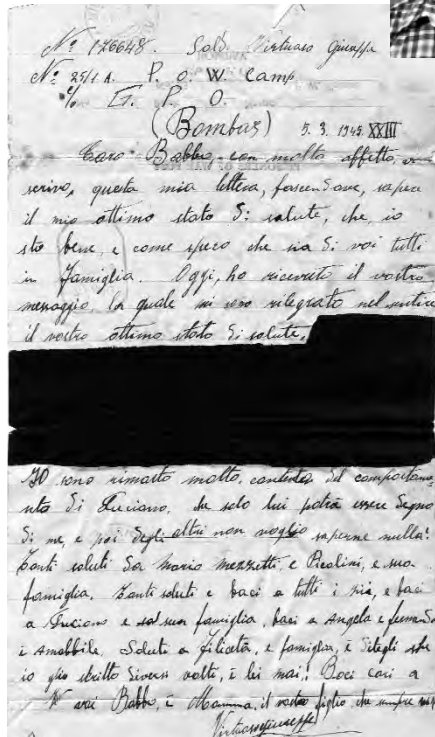 Nº 176648. Sold. Virtuoso Giuseppe
Nº 25/1 A. P. O. W. Camp
℅ G. P. O.
(Bombay) 5. 3. 1945. XXIII
Caro Babbo, con molto affetto, 
scrivo, questa mia lettera, sapere
il mio ottimo stato di salute, che, io
sto bene, e come spero che sia di voi tutti
in famiglia. Oggi, ho ricevuto il vostro
messaggio, la quale mi sono nel sentire
il vostro ottimo stato di salute,
IO sono rimasto molto, contento del comportame
nto di Luciano, da solo lui potrà essere degno
di me, e poi degli altri non voglio saperne nulla!
Tanti saluti da Mario Mezzetti, e Picolini, e sua
famiglia. Tanti saluti e baci a tutti i zia, e baci
a Luciano e sua famiglia, baci a Angela e
e Amabbile. Saluta a Filicetta, e famiglia, e ditegli che
io gliò scritto diversi volti, è lei mai! Baci cari a
voi Babbo, è Mamma, il vostro figlio, che sempre
Virtuosogiuseppe